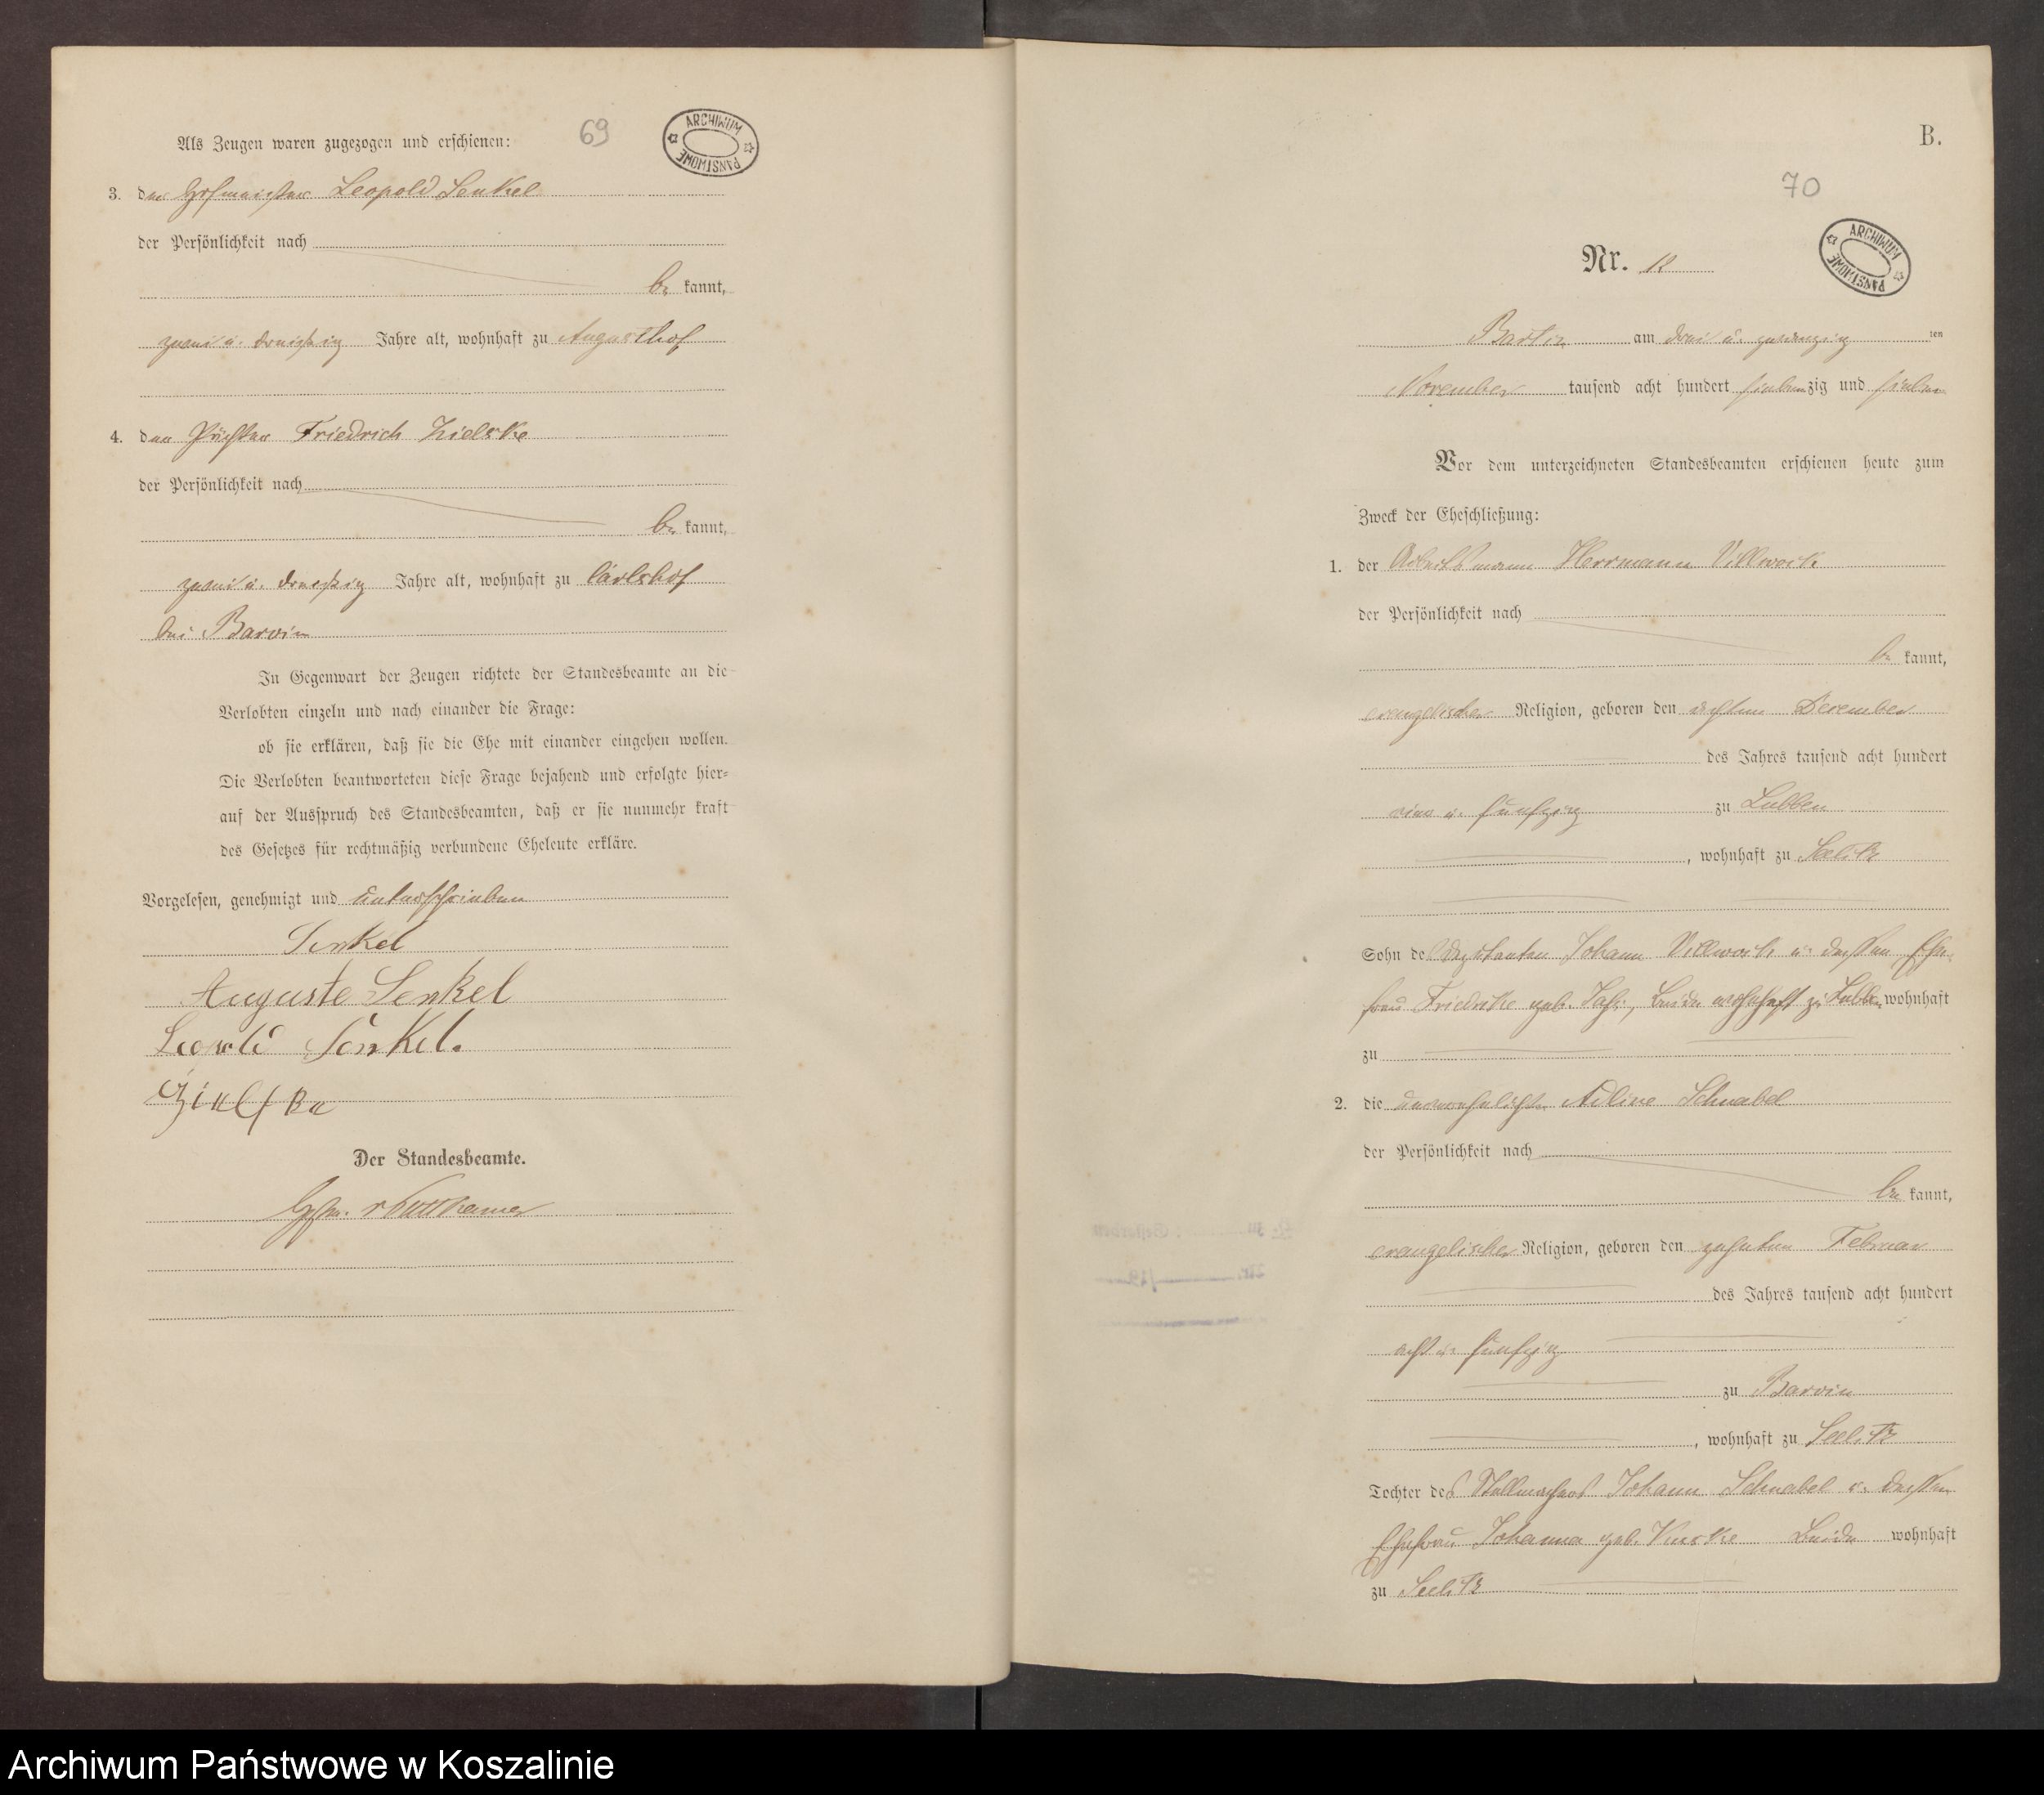 69
ARCHIWUM PAŃSTWOWE
Als Zeugen waren zugezogen und erschienen:
3. der Hofmeister Leopold Senkel
der Persönlichkeit nach
be kannt,
zwei u. dreißig Jahre alt, wohnhaft zu Augusthof
4. der Pächter Friedrich Zielske
der Persönlichkeit nach
be kannt,
zwei u. dreißig Jahre alt, wohnhaft zu Carlshof
bei Barvin
In Gegenwart der Zeugen richtete der Standesbeamte an die
Verlobten einzeln und nach einander die Frage:
ob sie erklären, daß sie die Ehe mit einander eingehen wollen.
Die Verlobten beantworteten diese Frage bejahend und erfolgte hier=
auf der Ausspruch des Standesbeamten, daß er sie nunmehr kraft
des Gesetzes für rechtmäßig verbundene Eheleute erkläre.
Vorgelesen, genehmigt und unterschrieben
Senkel
Auguste Senkel
Leopold Senkel.
Zielske
Der Standesbeamte.
v Puttkamer
B.
70
ARCHIWUM PAŃSTWOWE
Nr. 12
Bartin am drei u. zwanzig ten
November tausend acht hundert siebenzig und sieben
Vor dem unterzeichneten Standesbeamten erschienen heute zum
Zweck der Eheschließung:
1. der Arbeitsmann Herrmann Villwock
der Persönlichkeit nach
be kannt,
evangelischer Religion, geboren den achten December
des Jahres tausend acht hundert
vier u. fünfzig zu Lubben
, wohnhaft zu Seelitz
Sohn des Johann Villwock u. dessen Ehe-
frau Friedrike geb. beide wohnhaft zu Lubben wohnhaft
zu
2. die unverehelichte Adline Schnabel
der Persönlichkeit nach
be kannt,
evangelischer Religion, geboren den zehnten Februar
des Jahres tausend acht hundert
acht u. fünfzig
zu Barvin
, wohnhaft zu Seelitz
Tochter des Stellmachers Johann Schnabel u. dessen
Ehefrau Johanna geb. Kuske beide wohnhaft
zu Seelitz
Archiwum Państwowe w Koszalinie